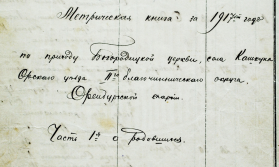 Метрическая книга за 1917й года
по приходу Богородицкой церкви, села Кашкука
Орскаго уезда II го благочинническаго округа.
Оренбургской епархiи
Часть 1я о родовшихся.